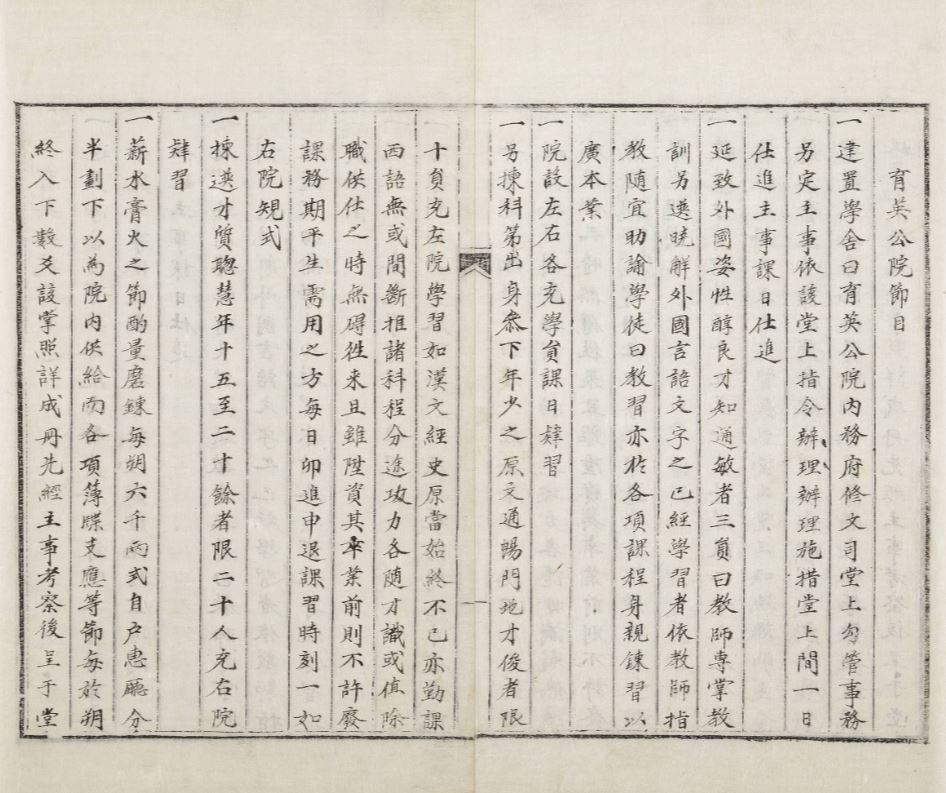 育英公院節目
一建置學舍曰育英公院內務府修文司堂上勾管事務
另定主事依該堂上指令辦理辦理施措堂上間一日
仕進主事課日仕進
一延致外國姿性醇良才知通敏者三貟曰教師專掌教
訓另選曉解外國言語文字之已經學習者依教師指
教隨宜助諭學徒曰教習亦於各項課程身親鍊習以
廣本業
一院設左右各充學貟課日肄習
一另揀科第出身叅下年少之原文通暢門地才俊者限
十貟充左院學習如漢文經史原當始終不已亦勤課
西語無或間斷推諸科程分途攻力各随才識或值除
職供仕之時無碍徃来且雖陞資其卒業前則不許廢
課務期平生需用之方每日卯進申退課習時刻一如
右院䂓式
一揀選才質聰慧年十五至二十餘者限二十人充右院
肄習
一薪水膏火之節酌量磨鍊每朔六千兩式自户惠廳分
半劃下以為院內供給而各項簿牒支應等節每於朔
終入下數爻該掌照詳成册先經主事考察後呈于堂
一